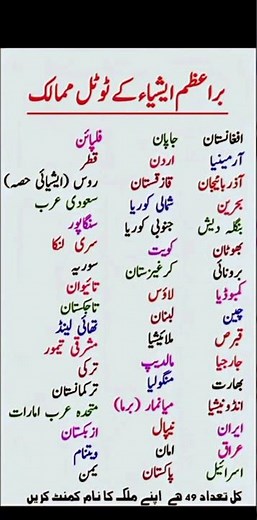 براعظم ایشیاء کے ٹوٹل ممالک
افغانستان
آرمینیا
آذربائیجان
بحرین
بنگلہ دیش
بھوٹان
برونائی
کمبوڈیا
چین
قبرص
جارجیا
بھارت
انڈونیشیا
ایران
عراق
اسرائیل
جاپان
اردن
قازقستان
شمالی کوریا
جنوبی کوریا
کویت
کرغیزستان
لاؤس
لبنان
ملائیشیا
مالدیپ
منگولیا
میانمار (برما)
نیپال
امان
پاکستان
فلپائن
قطر
روس (ایشیائی حصہ)
سعودی عرب
سنگاپور
سری لنکا
سوریہ
تائیوان
تاجکستان
تھائی لینڈ
مشرقی تیمور
ترکی
ترکمانستان
متحدہ عرب امارات
ازبکستان
ویتنام
یمن
کل تعداد 49 ھے اپنے ملک کا نام کمنٹ کریں